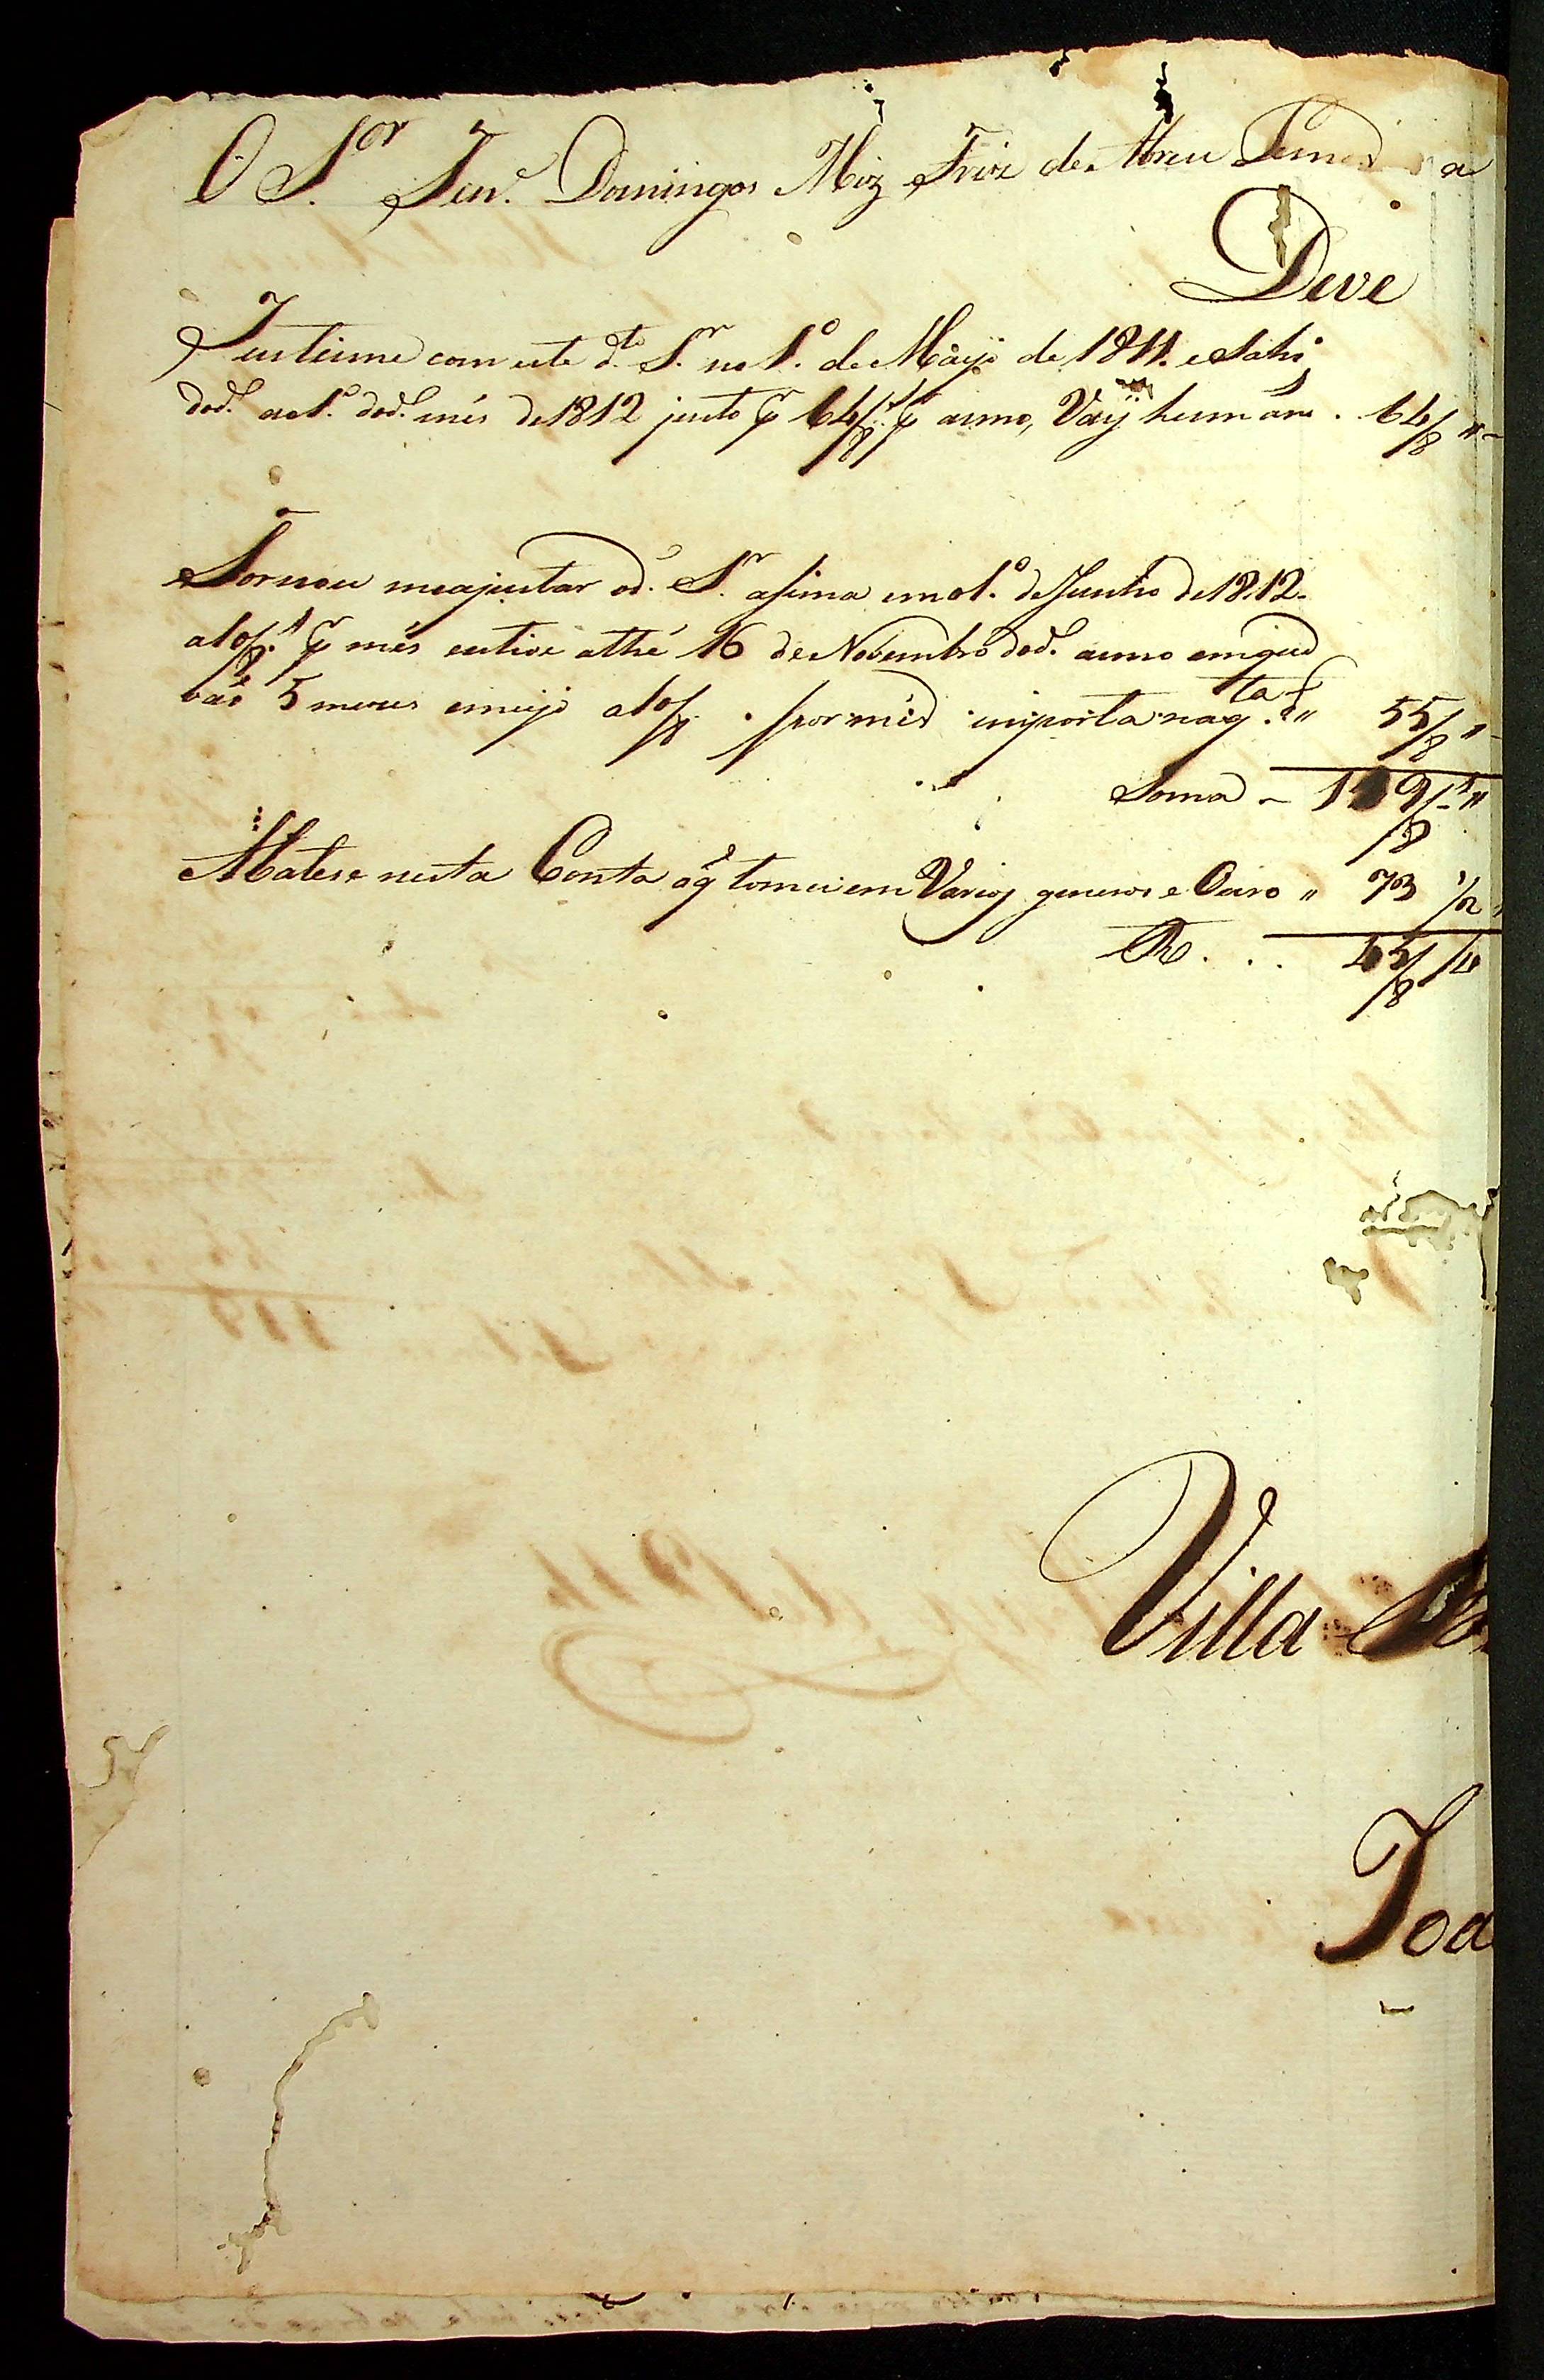 O S.or Ten.e Domingos Miz Friz de Abreu deve a
Deve
Justeime com este d.to S.r no 1.o de Mayo de 1811. e Sahi
dod.o ao 1.o dod.o mês de 1812 justo p 64/8.s p anno, Vay hum ãno . 64/8 "
Tornou meajustar od.o S.r asima em o 1.o de Junho de 1812.
a10/8.s p mês estive athé 16 de Novembro dod.o anno emque
vão 5 mezes emeyo a10/8. por mês importa naq.ta d " 55/8 "
Soma - 119/8 "
Abatese nesta Conta oq̃ tomei em Varios generos e Ouro " 73 1/2
R. . . 45/8 1/2
Villa
Joa